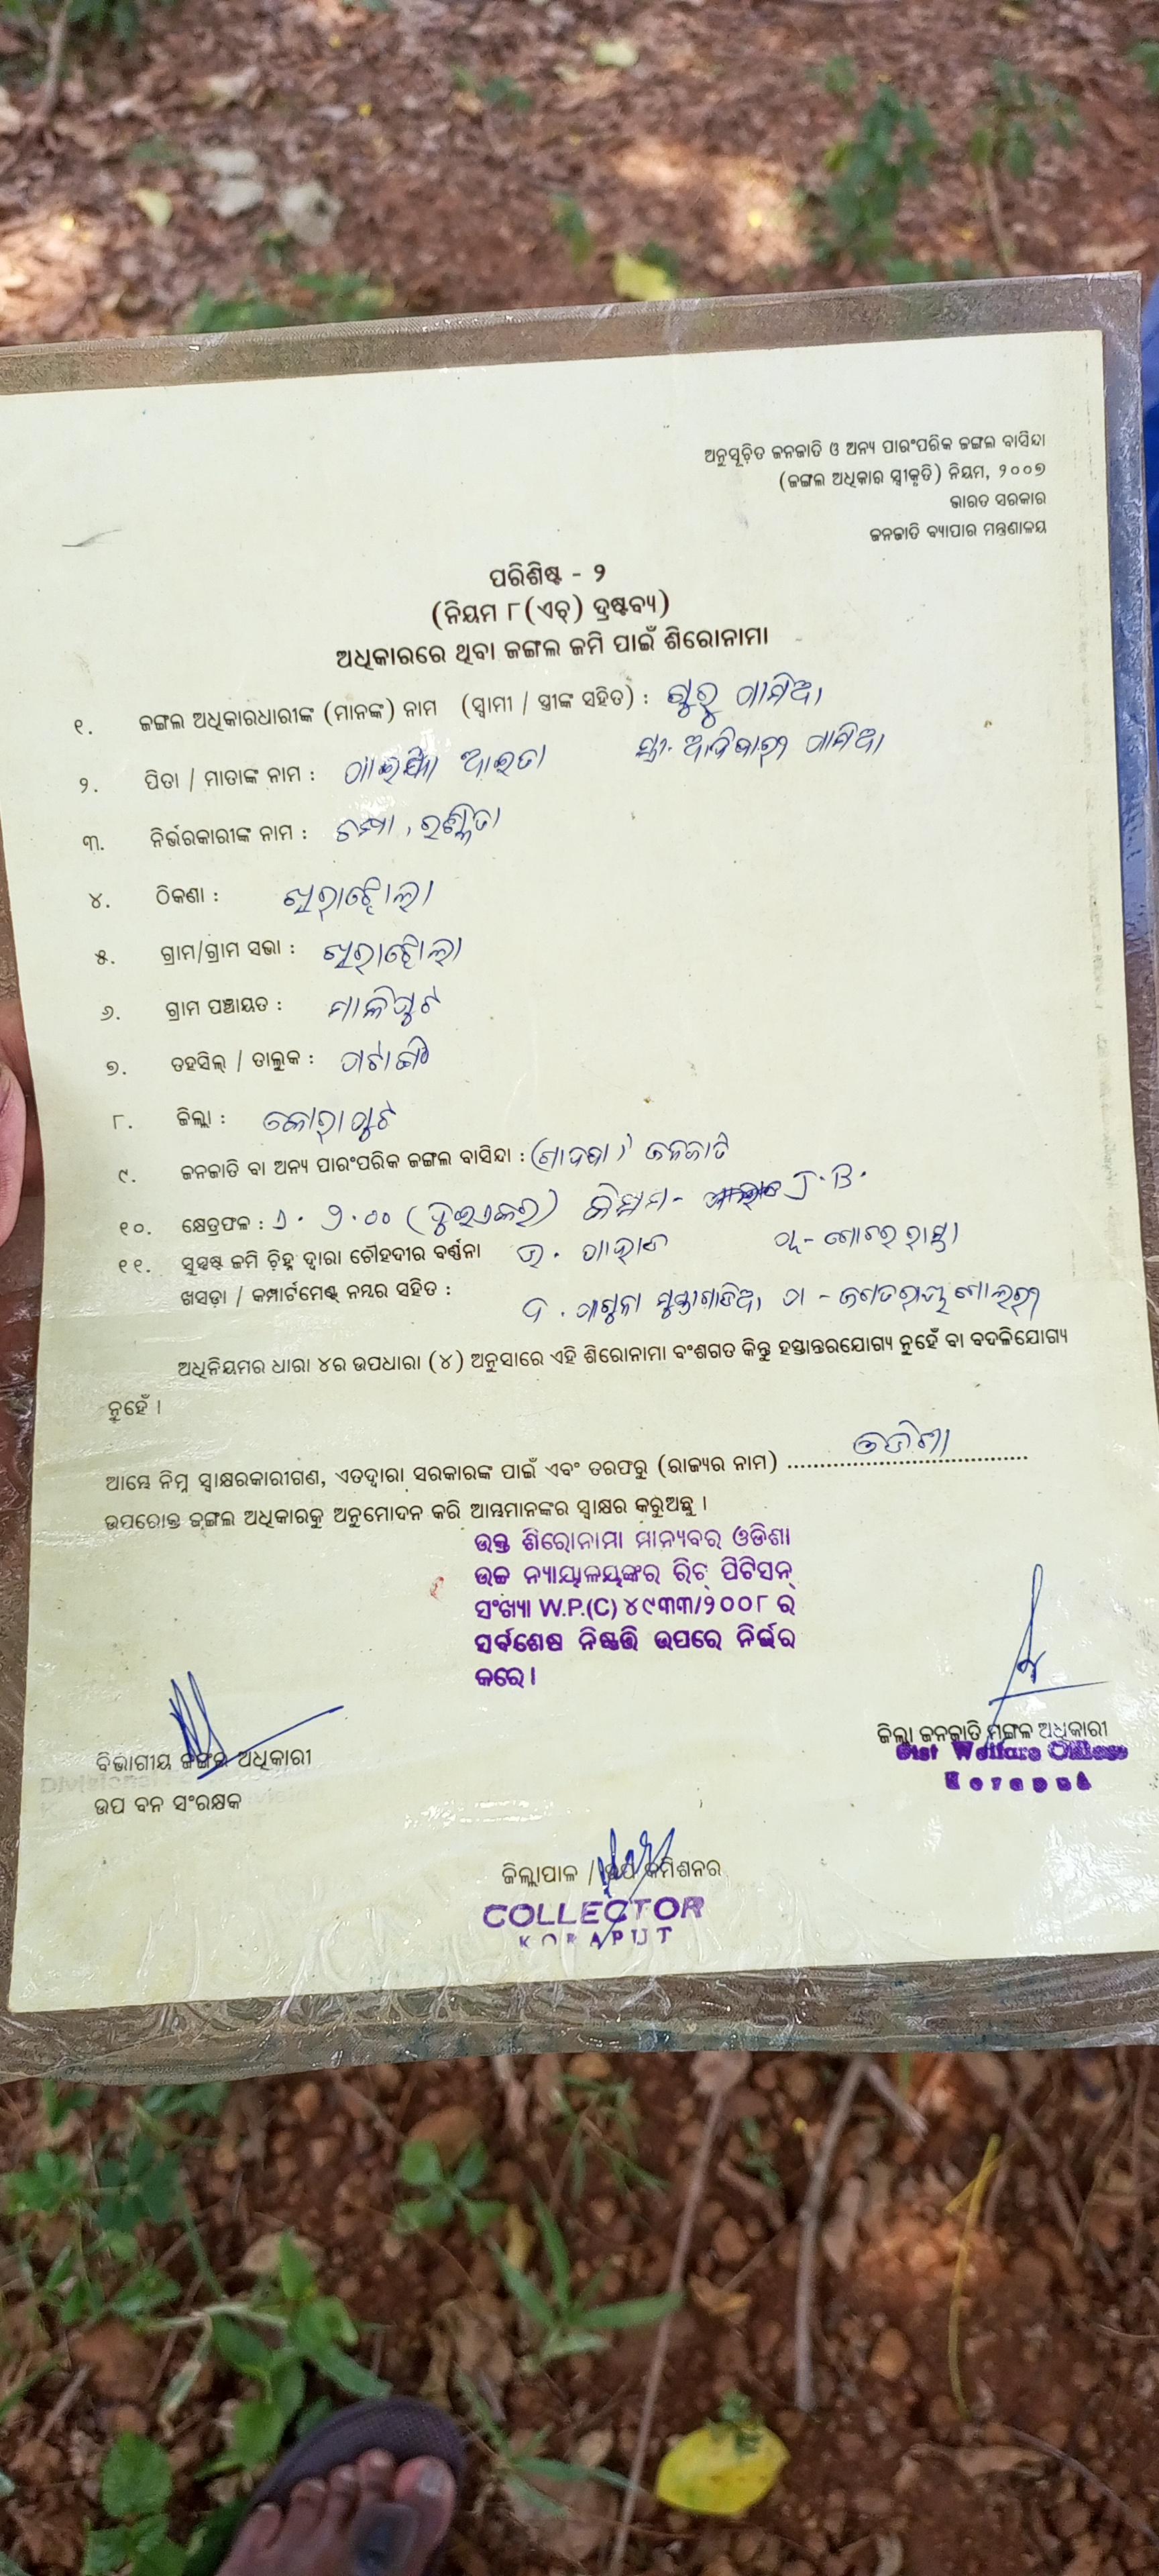 ଅନୁସୂଚିତ ଜନଜାତି ଓ ଅନ୍ୟ ପାରଂପରିକ ଜଙ୍ଗଲ ବାସିନ୍ଦା
(ଜଙ୍ଗଲ ଅଧିକାର ସ୍ୱୀକୃତି) ନିୟମ, ୨୦୦୭
ଭାରତ ସରକାର
ଜନଜାତି ବ୍ୟାପାର ମନ୍ତ୍ରଣାଳୟ
ପରିଶିଷ୍ଟ - ୨
(ନିୟମ ୮(ଏଚ୍) ଦ୍ରଷ୍ଟବ୍ୟ)
ଅଧିକାରରେ ଥିବା ଜଙ୍ଗଲ ଜମି ପାଇଁ ଶିରୋନାମା
୧. ଜଙ୍ଗଲ ଅଧିକାରଧାରୀଙ୍କ (ମାନଙ୍କ) ନାମ (ସ୍ୱାମୀ / ସ୍ତ୍ରୀଙ୍କ ସହିତ) :
୨. ପିତା / ମାତାଙ୍କ ନାମ :
୩. ନିର୍ଭରକାରୀଙ୍କ ନାମ : ଚମ୍ପା,
୪. ଠିକଣା :
୫. ଗ୍ରାମ/ଗ୍ରାମ ସଭା :
୬. ଗ୍ରାମ ପଞ୍ଚାୟତ : ମାଳିପୁଟ
୭. ତହସିଲ୍ / ତାଲୁକ : ପଟାଙ୍ଗୀ
୮. ଜିଲ୍ଲା : କୋରାପୁଟ
୯. ଜନଜାତି ବା ଅନ୍ୟ ପାରଂପରିକ ଜଙ୍ଗଲ ବାସିନ୍ଦା : (ଗାଦବା) ଜନଜାତି
୧୦. କ୍ଷେତ୍ରଫଳ : ଏ. ୨.୦୦ (ଦୁଇଏକର) କିସମ - J.B.
୧୧. ସୁସ୍ପଷ୍ଟ ଜମି ଚିହ୍ନ ଦ୍ୱାରା ଚୌହଦୀର ବର୍ଣ୍ଣନା ଉ. ପାହାଡ ପୂ - ଗୋଚର ରାସ୍ତା
ଖସଡ଼ା / କମ୍ପାର୍ଟମେଣ୍ଟ ନମ୍ବର ସହିତ : ଦ.
ଅଧିନିୟମର ଧାରା ୪ର ଉପଧାରା (୪) ଅନୁସାରେ ଏହି ଶିରୋନାମା ବଂଶଗତ କିନ୍ତୁ ହସ୍ତାନ୍ତରଯୋଗ୍ୟ ନୁହେଁ ବା ବଦଳିଯୋଗ୍ୟ
ନୁହେଁ ।
ଆମ୍ଭେ ନିମ୍ନ ସ୍ୱାକ୍ଷରକାରୀଗଣ, ଏତଦ୍ୱାରା ସରକାରଙ୍କ ପାଇଁ ଏବଂ ତରଫରୁ (ରାଜ୍ୟର ନାମ) ଓଡିଶା
ଉପରୋକ୍ତ ଜଙ୍ଗଲ ଅଧିକାରକୁ ଅନୁମୋଦନ କରି ଆମ୍ଭମାନଙ୍କର ସ୍ୱାକ୍ଷର କରୁଅଛୁ ।
ଉକ୍ତ ଶିରୋନାମା ମାନ୍ୟବର ଓଡିଶା
ଉଚ୍ଚ ନ୍ୟାୟାଳୟଙ୍କର ରିଟ୍ ପିଟିସନ୍
ସଂଖ୍ୟା W.P.(C) ୪୯୩୩/୨୦୦୮ ର
ସର୍ବଶେଷ ନିଷ୍ପତ୍ତି ଉପରେ ନିର୍ଭର
କରେ।
ବିଭାଗୀୟ ଜଙ୍ଗଲ ଅଧିକାରୀ
ଉପ ବନ ସଂରକ୍ଷକ
ଜିଲ୍ଲା ଜନଜାତି ମଙ୍ଗଳ ଅଧିକାରୀ
Dist Welfare Officer
Koraput
ଜିଲ୍ଲାପାଳ / ଉପ କମିଶନର
COLLECTOR
KORAPUT